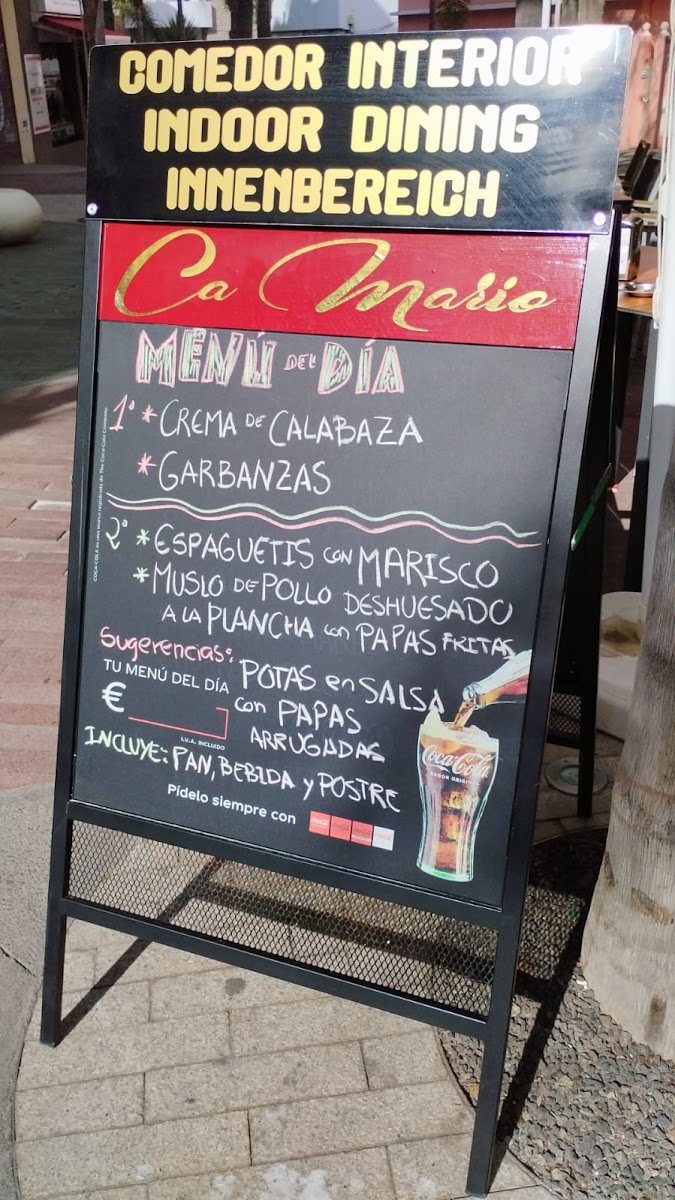 COMEDOR INTERIOR
INDOOR DINING
INNENBEREICH
Ca Mario
MENÚ DEL DÍA
1º * CREMA DE CALABAZA
* GARBANZAS
2º * ESPAGUETIS CON MARISCO
* MUSLO DE POLLO DESHUESADO
A LA PLANCHA CON PAPAS FRITAS
Sugerencias:
POTAS en SALSA
con PAPAS
ARRUGADAS
TU MENÚ DEL DÍA
€
I.V.A. INCLUIDO
INCLUYE: PAN, BEBIDA y POSTRE
Pídelo siempre con
Coca-Cola
SABOR ORIGINAL
COCA-COLA es una marca registrada de The Coca-Cola Company.